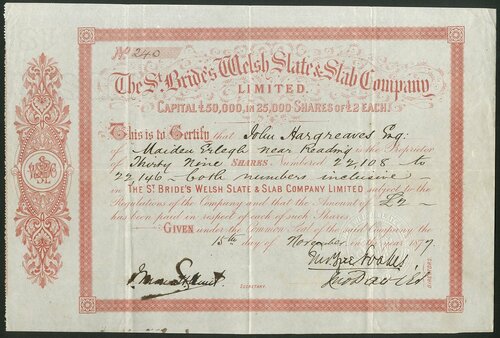 No. 240
The St. Bride's Welsh Slate & Slab Company
LIMITED.
CAPITAL £50,000, IN 25,000 SHARES OF £2 EACH.
This is to Certify that John Hargreaves Esq:
of Maiden Erlegh near Reading is the Proprietor
of Thirty Nine SHARES Numbered 22,108 to
22,146 - both numbers inclusive -
in THE ST. BRIDE'S WELSH SLATE & SLAB COMPANY LIMITED subject to the
Regulations of the Company and that the Amount of £2 -
has been paid in respect of each of such Shares.
GIVEN under the Common Seal of the said Company the
15th day of November in the year 1877.
DIRECTORS.
Jno Davis
SECRETARY.